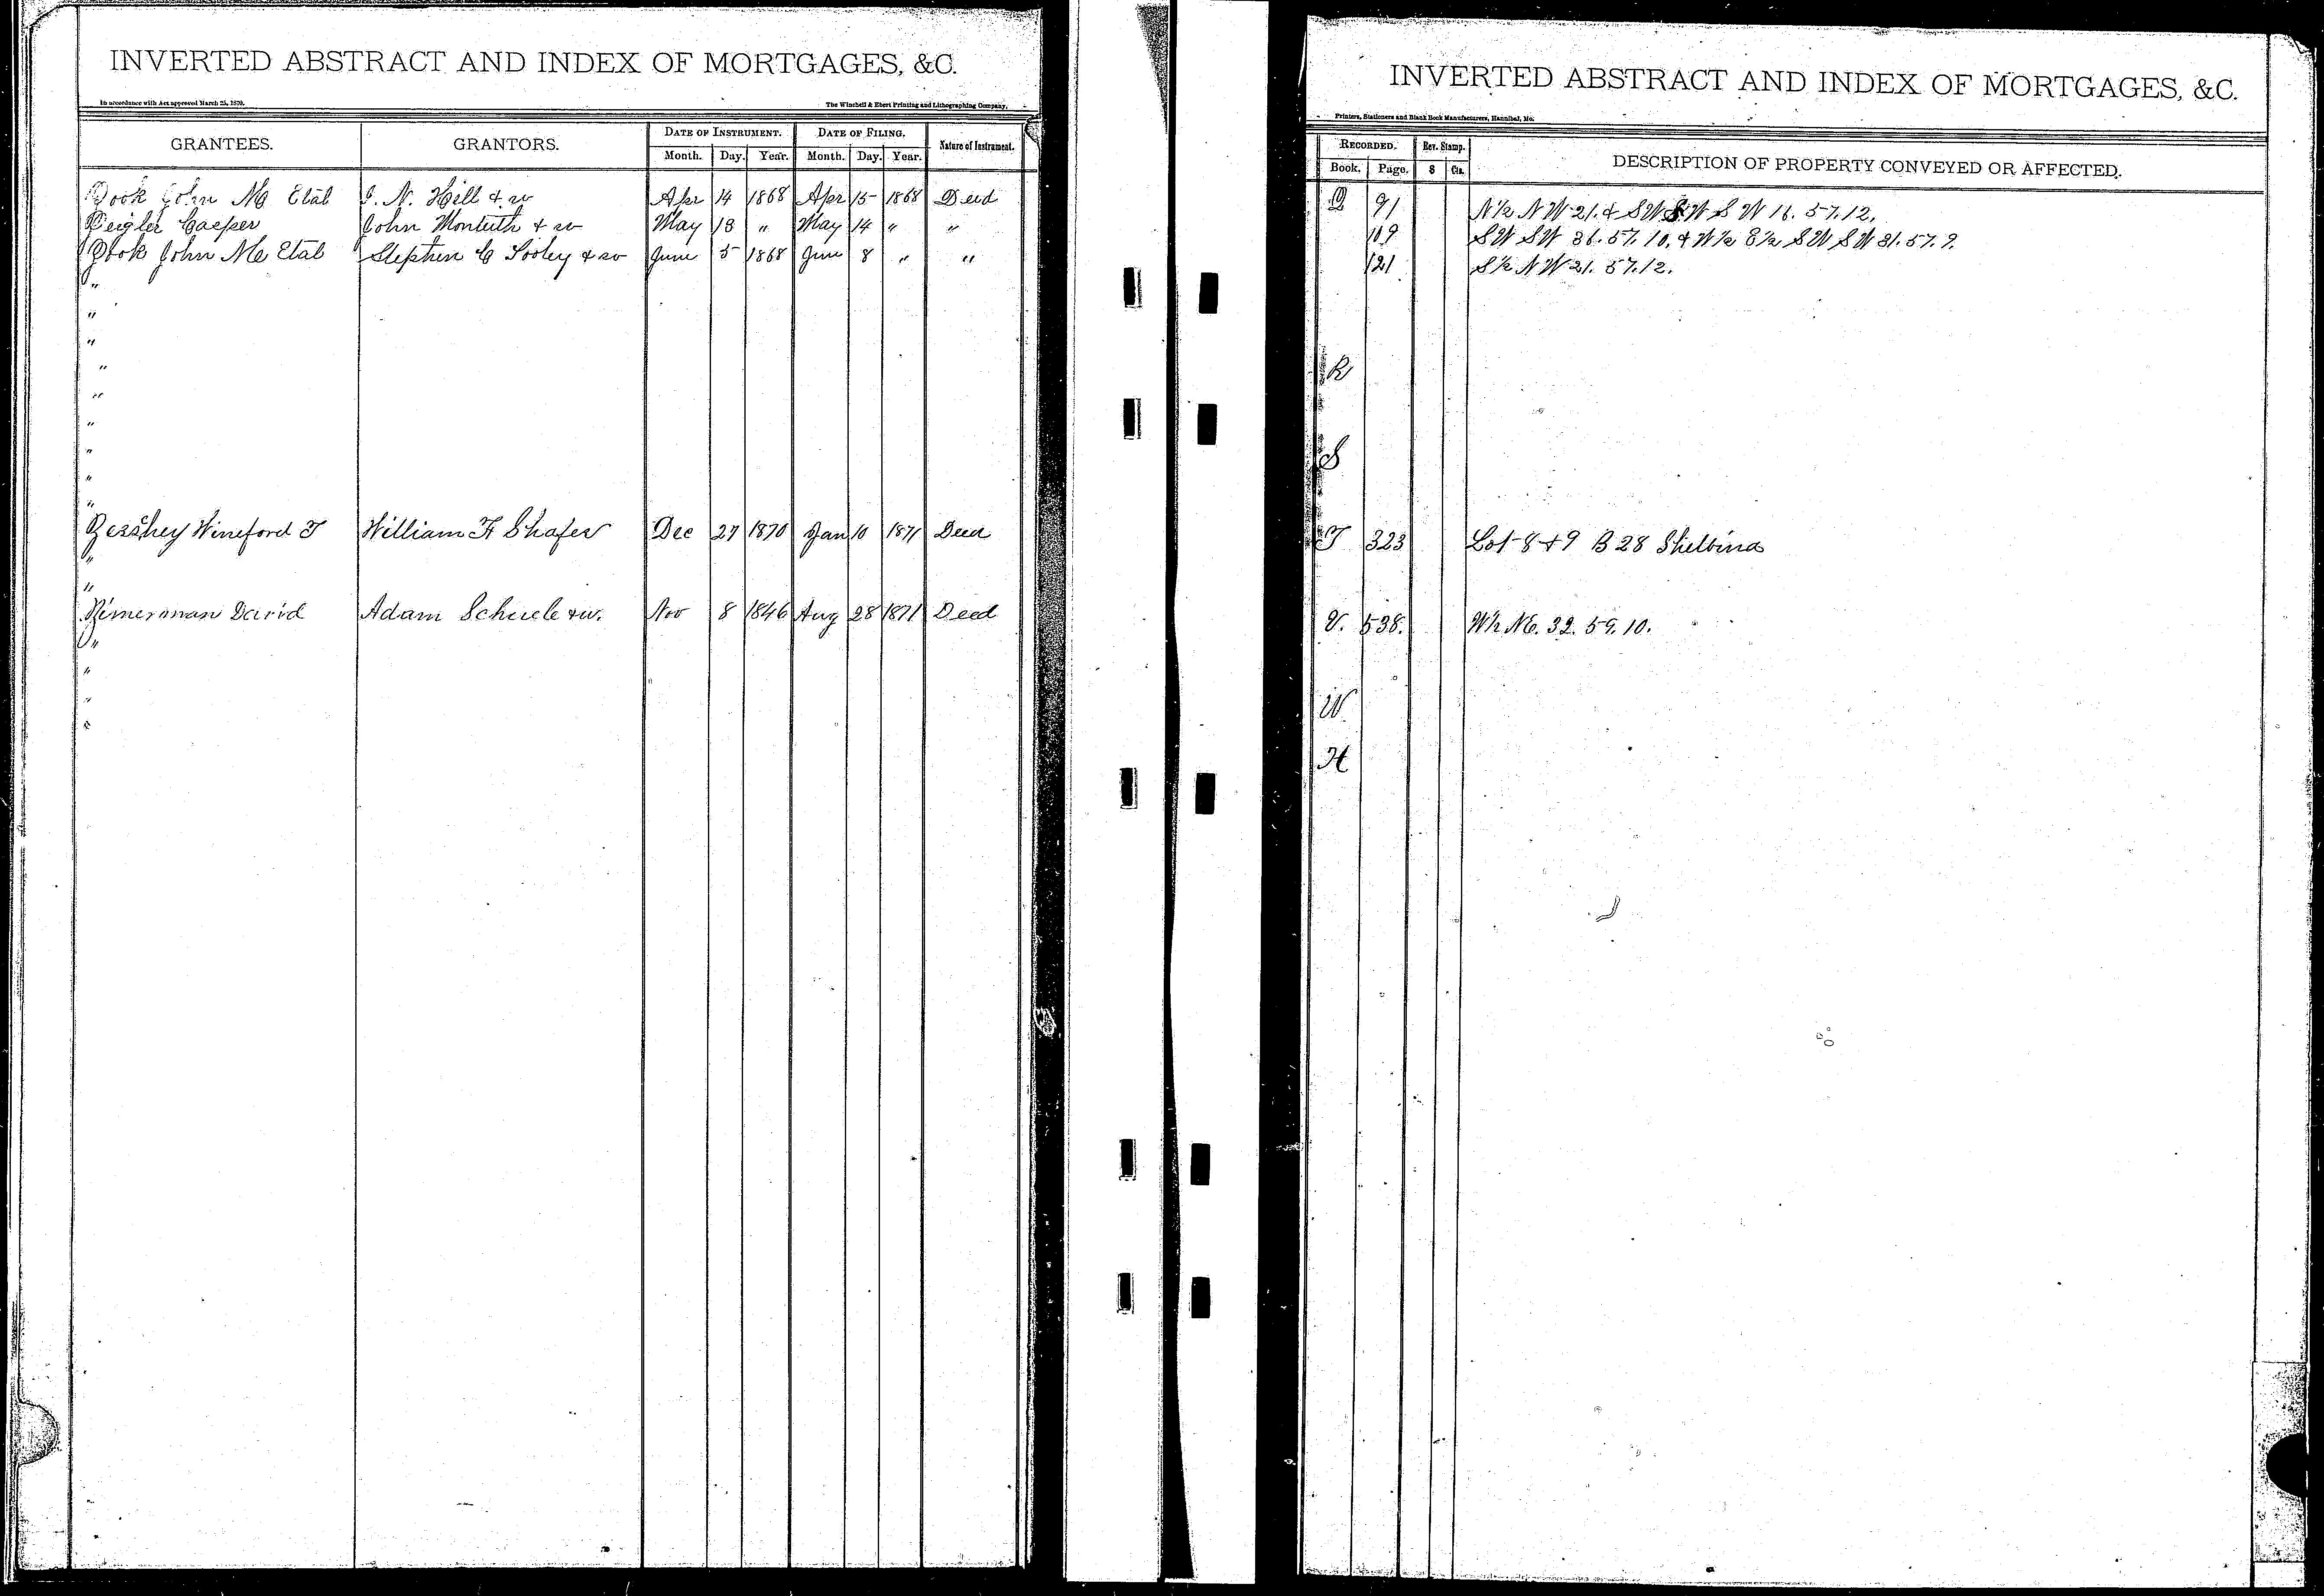 INVERTED ABSTRACT AND INDEX OF MORTGAGES, &C.
In accordance with Act approved March 25, 1870. The Winchell & Ebert Printing and Lithographing Company,
GRANTEES. GRANTORS. DATE OF INSTRUMENT. DATE OF FILING. Nature of Instrument.
Month. Day. Year. Month. Day. Year.
Zook John M Etal I. N. Hill & w Apr 14 1868 Apr 15 1868 Deed
Zeigler Casper John Monteith & w May 13 " May 14 " "
Zook John M Etal Stephen C Sooley & w June 5 1868 June 8 " "
"
"
"
"
"
"
"
"
"
Wineford T William F Shafer Dec 27 1870 Jan 10 1871 Deed
"
"
Zimerman David Adam & w. Nov 8 1846 Aug 28 1871 Deed
"
"
"
"
INVERTED ABSTRACT AND INDEX OF MORTGAGES, &C.
Printers, Stationers and Blank Book Manufacturers, Hannibal, Mo.
RECORDED. Rev. Stamp. DESCRIPTION OF PROPERTY CONVEYED OR AFFECTED.
Book. Page. $ Cts.
Q 91 N½ NW 21. & SW SW 16. 57. 12.
109 SW SW 36. 57. 10. & W½ E½ SW SW 31. 57. 9.
121 S½ NW 21. 57. 12.
R
S
T 323 Lot 8 & 9 B 28 Shelbina
V. 538. W½ NE. 32. 59. 10.
W.